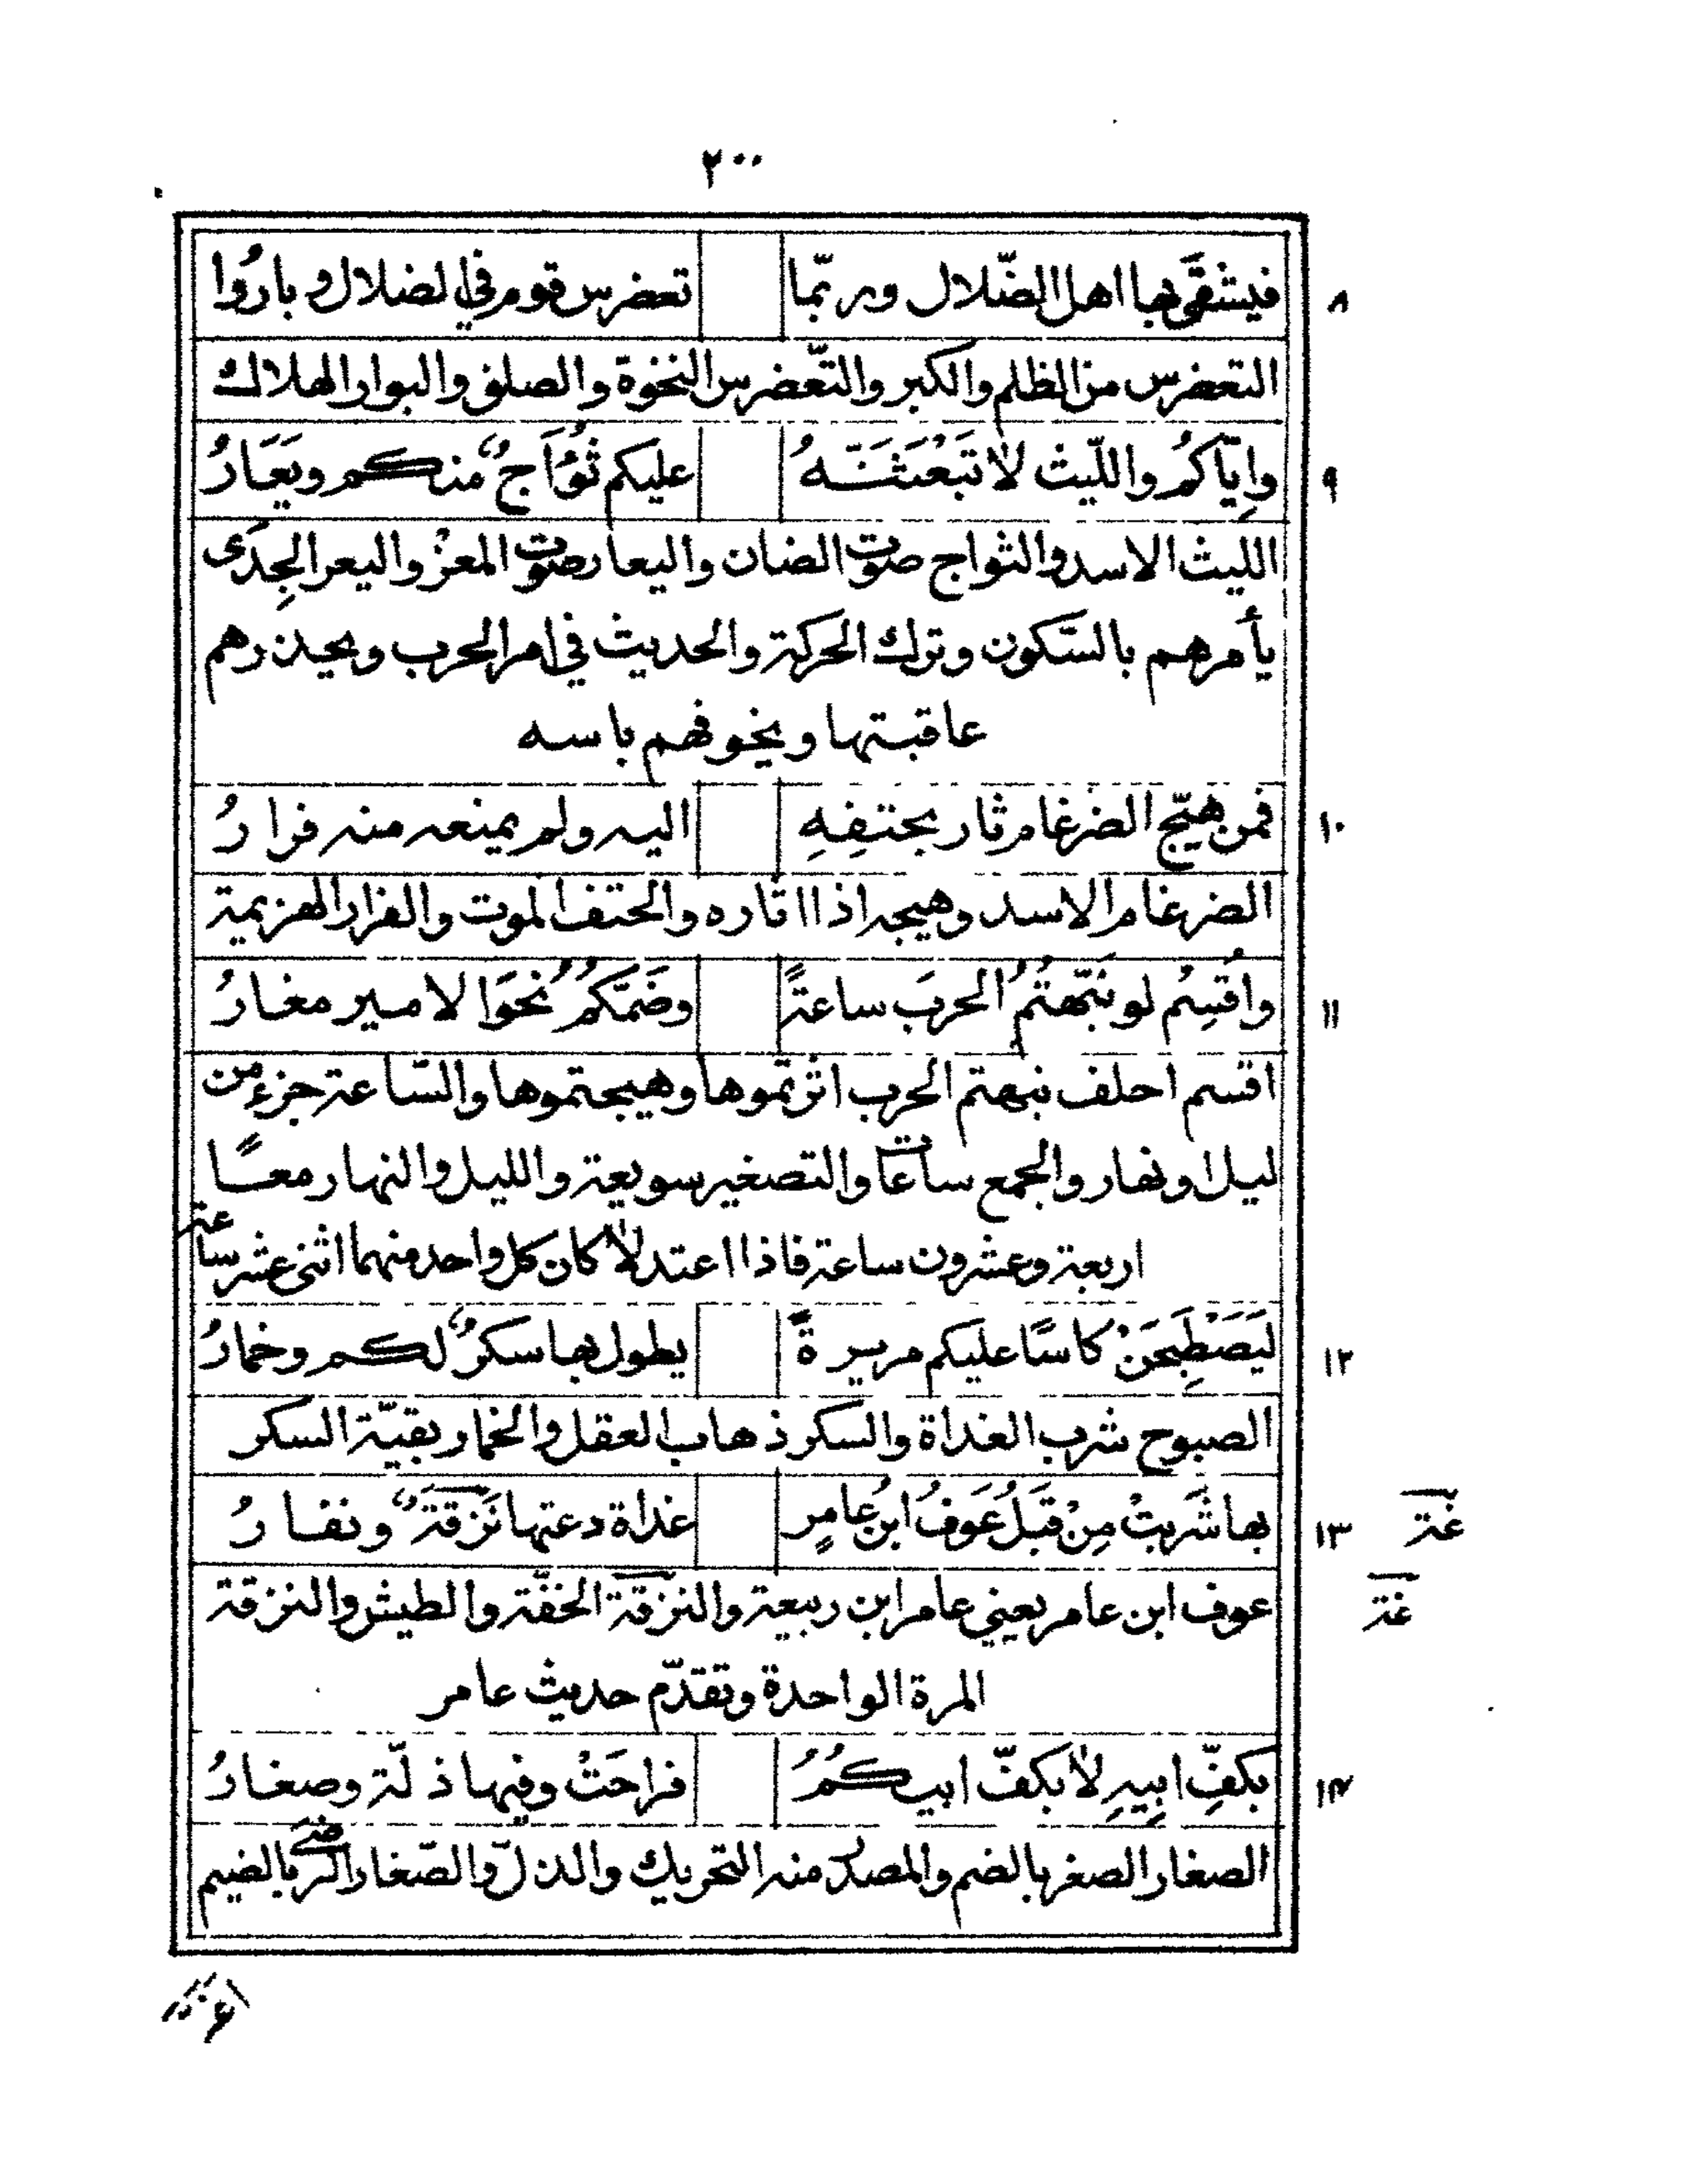 ٢٠٠
فيشقى بها اهل الضّلال وربّما تعضرس قوم في الضلال وبارُوا ٨
التعضرس من الظلم والكبر والتّعضرس النخوة والصلف والبوار الهلاك
وإيّاكُم واللّيث لا تَبْعَثَنَّهُ عليكم ثُؤَاجٌ منكم ويَعَارُ ٩
الليث الاسد والثواج صوت الضان واليعار صوت المعزْ واليعر الجِدَى
يأمرهم بالسّكون وترك الحَركة والحديث في امر الحرب ويحذرهم
عاقبتها ويخوفهم باسه
فمن هيّج الضرغام ثار بحتفِهِ اليه ولم يمنعه منه فرارُ ١٠
الضرغام الاسد وهيجه اذا اثاره والحتف الموت والفرار الهزيمة
واُقسِم لو نبّهتُمُ الحربَ ساعةً وضَمَّكُمُ نحوَا لامير مغارُ ١١
اقسم احلف نبهتم الحرب اثرتموها وهيجتموها والسّاعة جزء من
ليل او نهار والجمع ساعات والتصغير سويعة والليل والنهار معًا
اربعة وعشرون ساعة فاذا اعتدلا كان كل واحد منهما اثنى عشر ساعة
ليَصَْطَبِحَنْ كاسًا عليكم مريرةً يطول بها سكرٌ لكم وخمارُ ١٢
الصبوح شرب الغداة والسكر ذهاب العقل والخمار بقيّة السكر
بها شَربتْ مِنْ قَبَلُ عَوفُ ابنُ عامِرٍ غداة دعتها نَزقةٌ ونفارُ ١٣
عوف ابن عامر يعني عامر ابن ربيعة والنزقة الخفّة والطيش والنزقة
المرة الواحدة وتقدّم حديث عامر
بكفِّ ابِيهِ لا بكفّ ابيكُمُ فراحَتْ وفيها ذلّة وصغارُ ١٤
الصغار الصغر بالضم والمصدر منه التحريك والذلّ والصّغار الرضى بالضيم